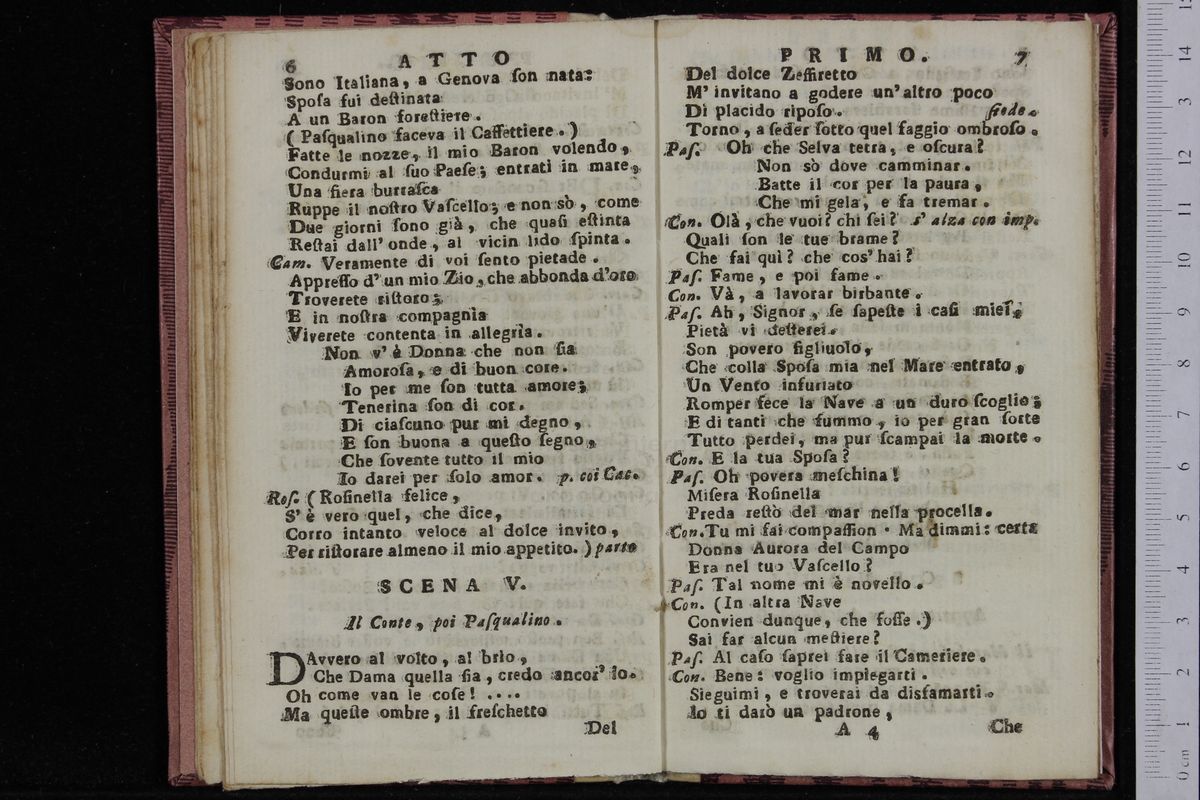 6 ATTO
Sono Italiana, a Genova ſon nata:
Spoſa fui deſtinata
A un Baron foreſtiere.
( Paſqualino faceva il Caffettiere. )
Fatte le nozze, il mio Baron volendo,
Condurmi al ſuo Paeſe; entrati in mare,
Una fiera burraſca
Ruppe il noſtro Vaſcello; e non sò, come
Due giorni ſono già, che quaſi eſtinta
Reſtai dall' onde, al vicin lido ſpinta.
Cam. Veramente di voi ſento pietade.
Appreſſo d' un mio Zio, che abbonda d'oro
Troverete riſtoro;
E in noſtra compagnìa
Viverete contenta in allegrìa.
Non v' è Donna che non ſia
Amoroſa, e di buon core.
Io per me ſon tutta amore;
Tenerina ſon di cor.
Di ciaſcuno pur mi degno,
E ſon buona a queſto ſegno,
Che ſovente tutto il mio
Io darei per ſolo amor. p. coi Cac.
Roſ. ( Roſinella felice,
S' è vero quel, che dice,
Corro intanto veloce al dolce invito,
Per riſtorare almeno il mio appetito. ) parte
SCENA V.
Il Conte, poi Paſqualino.
DAvvero al volto, al brio,
Che Dama quella ſia, credo ancor' io.
Oh come van le coſe! ....
Ma queſte ombre, il freſchetto
Del
PRIMO. 7
Del dolce Zeffiretto
M' invitano a godere un' altro poco
Di placido ripoſo. ſiede.
Torno, a ſeder ſotto quel faggio ombroſo.
Paſ. Oh che Selva tetra, e oſcura?
Non sò dove camminar.
Batte il cor per la paura,
Che mi gela, e fa tremar.
Con. Olà, che vuoi? chi ſei? s' alza con imp.
Quali ſon le tue brame?
Che fai quì? che cos' hai?
Paſ. Fame, e poi fame.
Con. Và, a lavorar birbante.
Paſ. Ah, Signor, ſe ſapeſte i caſi miei,
Pietà vi deſterei.
Son povero figliuolo,
Che colla Spoſa mia nel Mare entrato,
Un Vento infuriato
Romper fece la Nave a un duro ſcoglio;
E di tanti che fummo, io per gran ſorte
Tutto perdei, ma pur ſcampai la morte.
Con. E la tua Spoſa?
Paſ. Oh povera meſchina!
Miſera Roſinella
Preda reſtò del mar nella procella.
Con. Tu mi fai compaſſion. Ma dimmi: certa
Donna Aurora del Campo
Era nel tuo Vaſcello?
Paſ. Tal nome mi è novello.
Con. (In altra Nave
Convien dunque, che foſſe.)
Sai far alcun meſtiere?
Paſ. Al caſo ſaprei fare il Cameriere.
Con. Bene: voglio impiegarti.
Sieguimi, e troverai da disfamarti.
Io ti darò un padrone,
A 4 Che